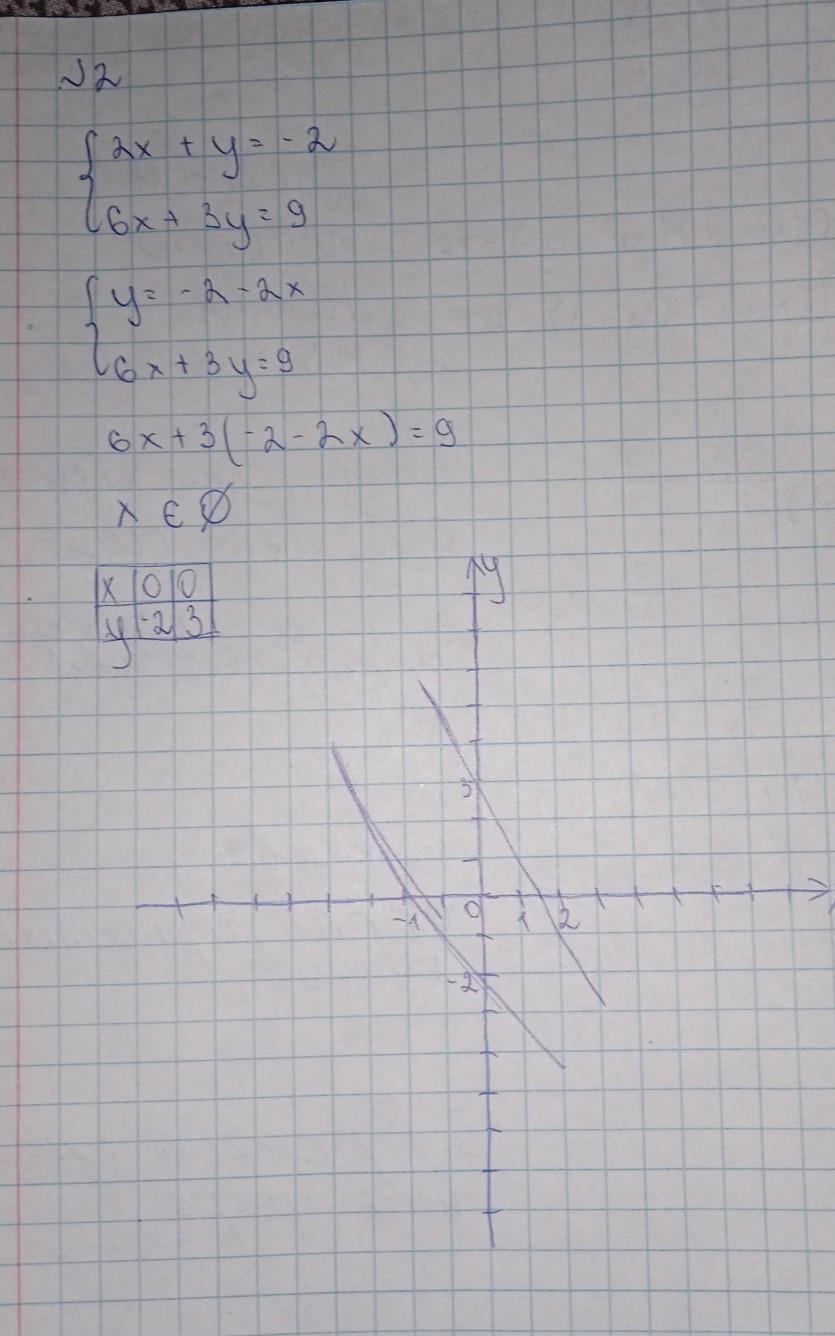 √2
{2x + y = -2
{6x + 3y = 9
{y = -2 - 2x
{6x + 3y = 9
6x + 3(-2 - 2x) = 9
x ∈ ∅
x 0 0
y -2 3
y
3
-1 0 1 2
-2